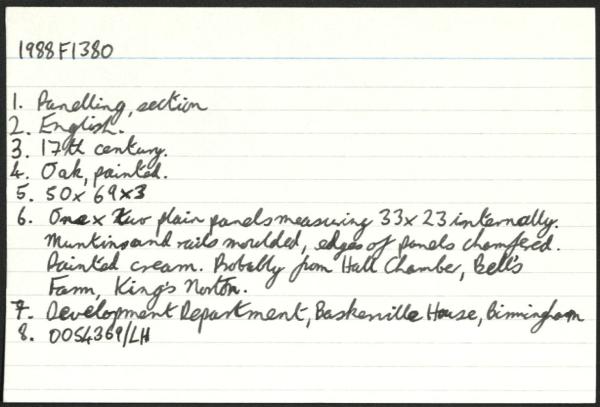 1988F1380
1. Panelling, section
2. English.
3. 17th century.
4. Oak, painted.
5. 50x69x3
6. One x two plain panels measuring 33x23 internally.
Muntins and rails moulded, edges of panels chamfered.
Painted cream. Probably from Hall Chamber, Bell's
Farm, King's Norton.
7. Development Department, Baskerville House, Birmingham
8. 0054369/LH